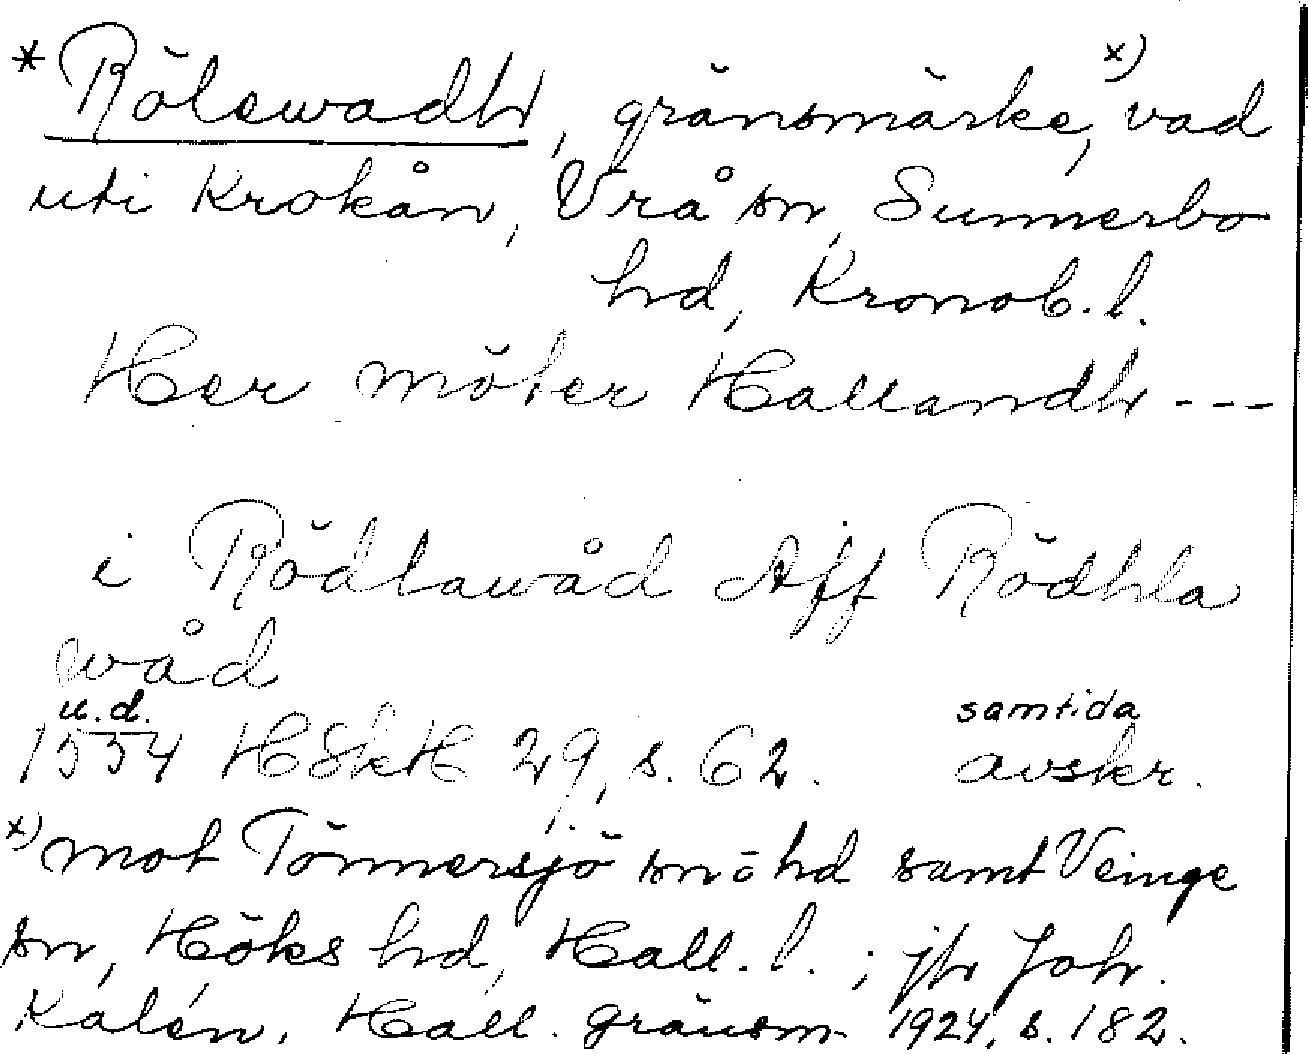 * Rölewadh, gränsmärke, x) vad
uti Krokån, Vrå sn, Sunnerbo
hd, Kronob. l.
Her möter Hallandh ---
i Rödlawåd Aff Rödhla
wåd
u.d. samtida
1554 HSkH 29, s. 62. avskr.
x) mot Tönnersjö sn o hd samt Veinge
sn, Höks hd, Hall. l. ; jfr Joh.
Kalén, Hall. gränsm. 1924, s. 182.